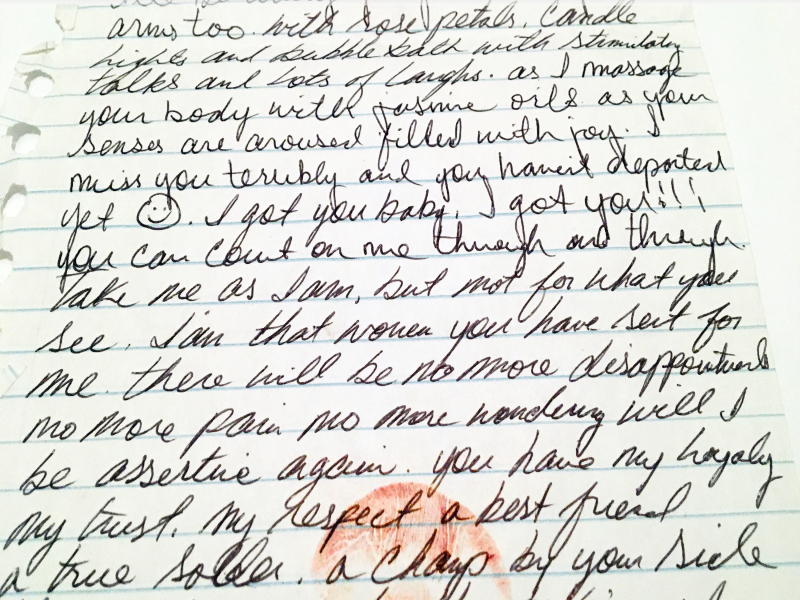 arms too. with rose petals. Candle
lights and bubble bath with stimulating
talks and Lots of laughs. as I massage
your body with jasmine oils as your
senses are aroused filled with joy. I
miss you terribly and you haven't departed
yet ☺. I got you baby. I got you!!!
you can count on me through and through.
Take me as I am, but not for what you
see. I am that women you have sent for
me. there will be no more disappointments
no more pain no more wondering will I
be assertive again. you have my loyalty
my trust. my respect a best friend
a true solder. a champ by your side